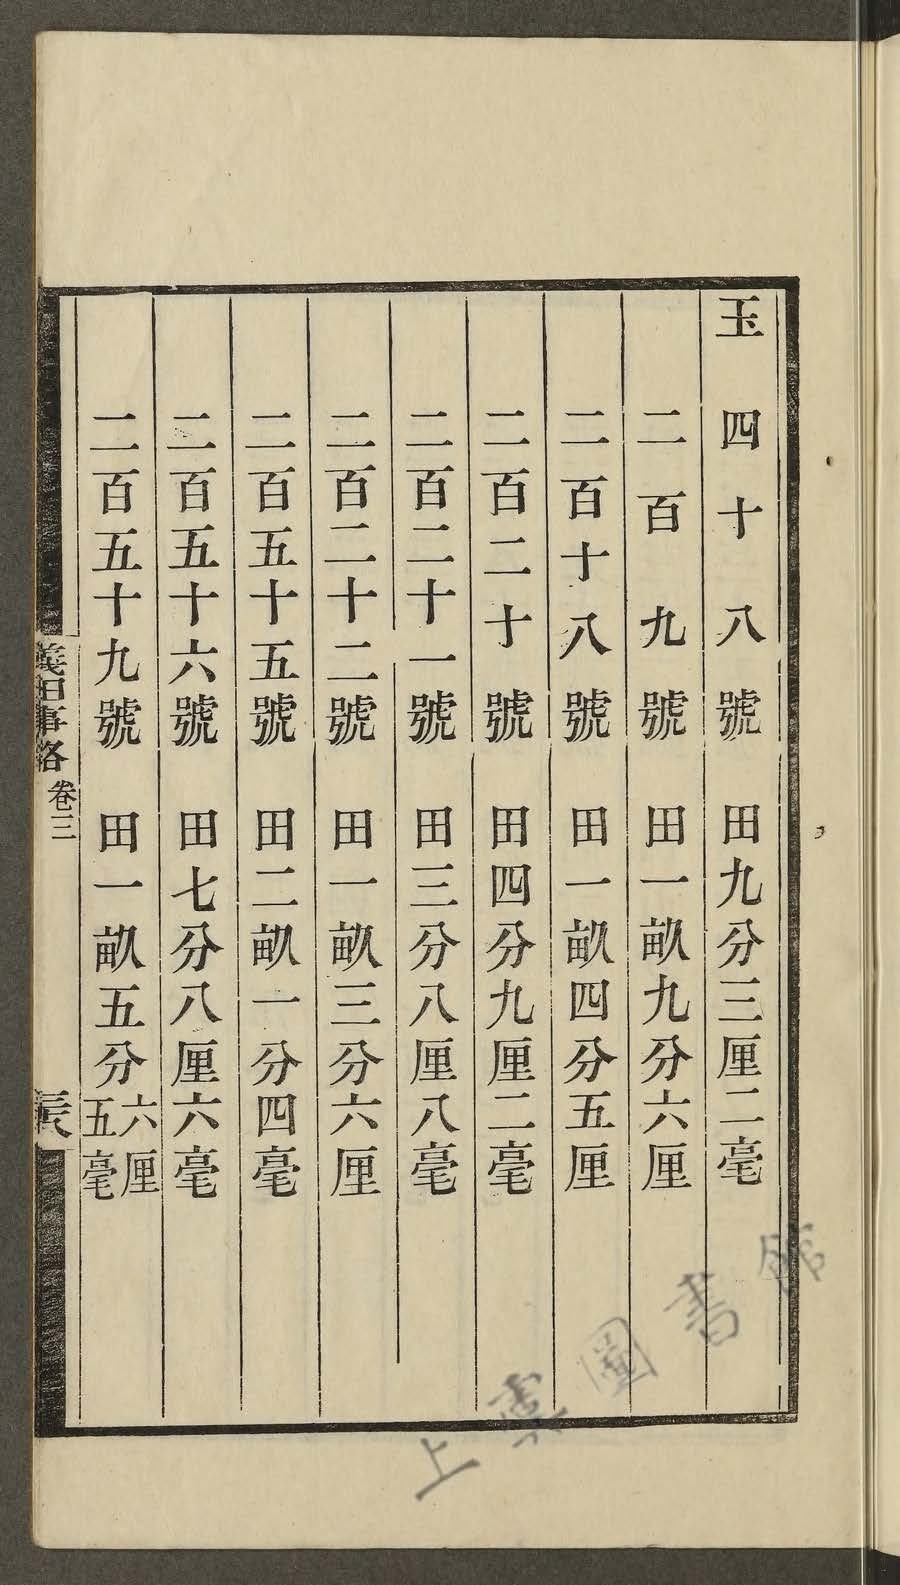 玉　四十八號　田九分三厘二毫
二百九號　田一畝九分六厘
二百十八號　田一畝四分五厘
二百二十號　田四分九厘二毫
二百二十一號　田三分八厘八毫
二百二十二號　田一畝三分六厘
二百五十五號　田二畝一分四毫
二百五十六號　田七分八厘六毫
二百五十九號　田一畝五分六厘五毫
義田事略　卷三
上虞圖書館